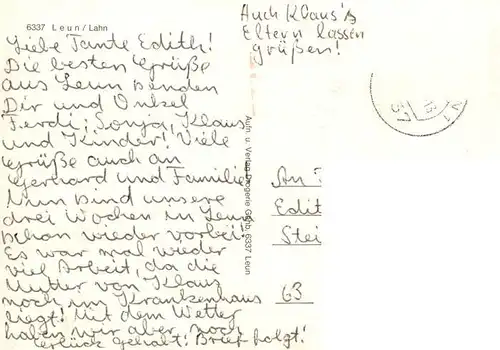 6337 Leun/Lahn
Auch Klaus's
Eltern lassen
grüßen!
Liebe Tante Edith!
Die besten Grüße
aus Leun senden
Dir und Onkel
Ferdi, Sonja, Klaus
und Kinder! Viele
Grüße auch an
Gerhard und Familie
Nun sind unsere
drei Wochen in Leun
schon wieder vorbei!
Es war mal wieder
viel Arbeit, da die
Mutter von Klaus
noch im Krankenhaus
liegt! Mit dem Wetter
haben wir aber noch
Glück gehabt! Brief folgt!
Aufn. u. Verlag Drogerie 6337 Leun
An
Edit
Stei
63